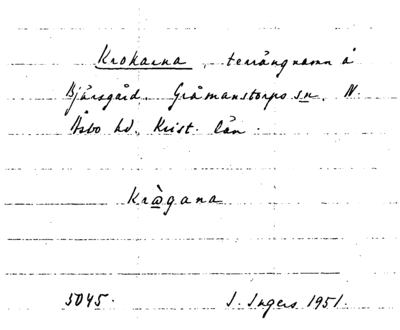 Krokarna, terrängnamn å
Bjärsgård. Gråmanstorps sn. N.
Åsbo hd. Krist. län.
Kràgana
5045. I. Ingers 1951.